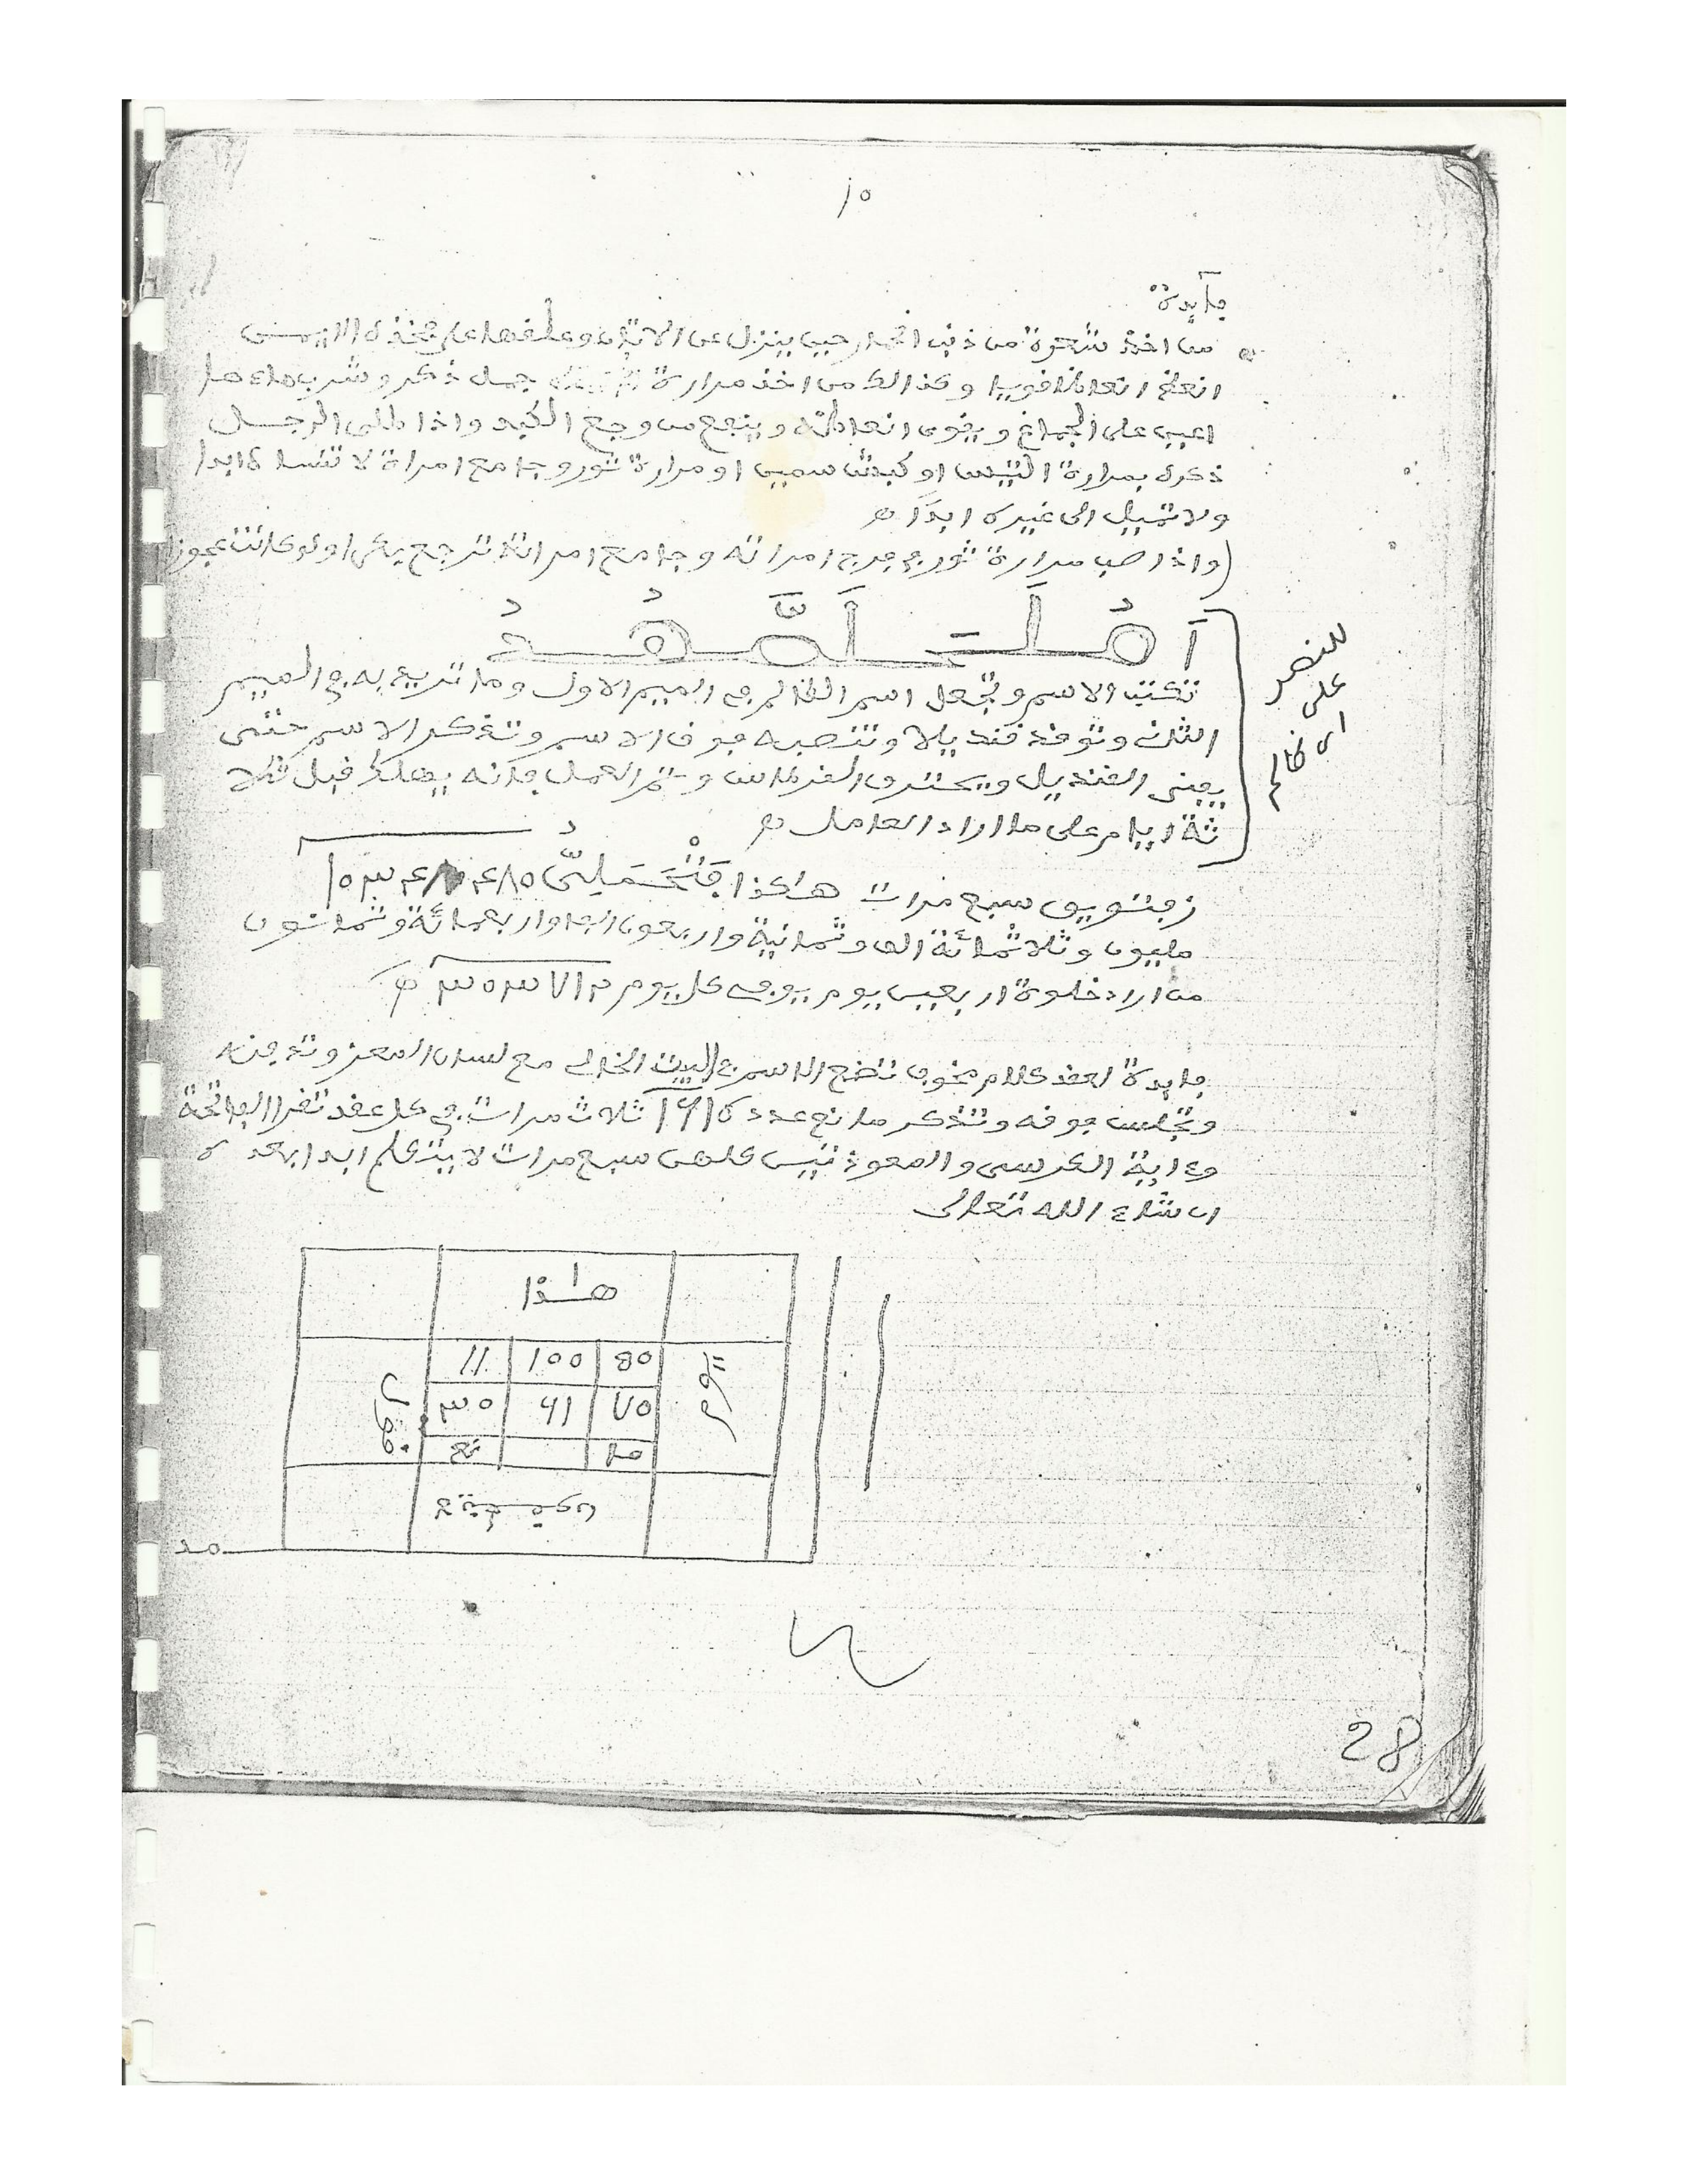 ١٥
فايدة
من اخذ شعرة من ذنب الحمار حين ينزل عن الاتان وعلقها على فخذه الايمن
انعظ انعاظا قويا وكذالك من اخذ مرارة جمل ذكر وشرب ماءها
اعين على الجماع ويقوى انعاظه وينفع من وجع الكبد واذا طلى الرجل
ذكره بمرارة التيس او كبش سمين او مرارة ثور وجامع امراة لا تنساه ابدا
ولا تميل الى غيره ابدا
(واذا صب مرارة ثور في فرج امراته وجامع امراته ترجع بكرا ولو كانت عجوزا
للنصر
على
اي ظالم
تكتب الاسم وتجعل اسم الظالم في الميم الاول وما تريد به في الميم
الثان وتوقد قنديلا وتنصبه فوق الاسم وتذكر الاسم حتى
يفنى القنديل ويحترق القرطاس وتم العمل فانه يهلك قبل ثلا
ثة ايام على ما اراد العامل
سبع مرات هاكذا
مليون وثلاثمائة الف وثمانية واربعون الفا واربعمائة وثمانون
من اراد خلوة اربعين يوم يوفي كل يوم
فايدة لعقد كلام مخوف تضع الاسم في البيت الخالي مع لسان المعز وتدفنه
وتجلس فوقه وتذكر مانع عدد ١٦١ ثلاث مرات في كل عقد تقرا الفاتحة
وءاية الكرسي والمعوذتين كلهن سبع مرات لا يتكلم ابدا بعده
ان شاء الله تعالى
هاذا
80 100 11
اليوم
قول
٧٥ ٦١ ٣٥
ما نع
28